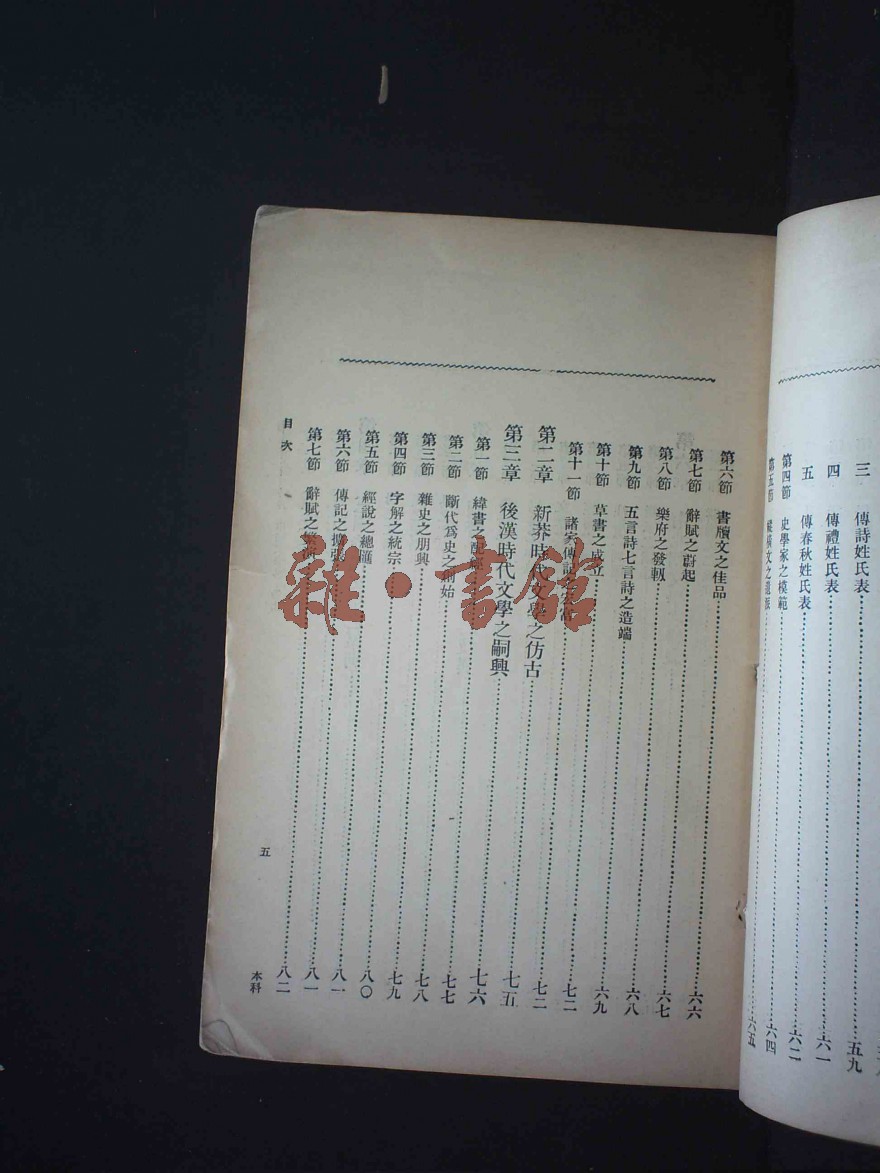 三　傳詩姓氏表……五九
四　傳禮姓氏表……六一
五　傳春秋姓氏表……六二
第四節　史學家之模範……六四
第五節　縱橫文之遺脈……六五
第六節　書牘文之佳品……六六
第七節　辭賦之蔚起……六七
第八節　樂府之發軔……六八
第九節　五言詩七言詩之造端……六九
第十節　草書之成立……七二
第十一節　諸家傳記之富……七二
第二章　新莽時代文學之仿古……七五
第三章　後漢時代文學之嗣興……七六
第一節　緯書之配經……七七
第二節　斷代爲史之創始……七八
第三節　雜史之朋興……七九
第四節　字解之統宗……八〇
第五節　經說之總匯……八一
第六節　傳記之擴張……八一
第七節　辭賦之……八二
目次
五
本科
雜·書館